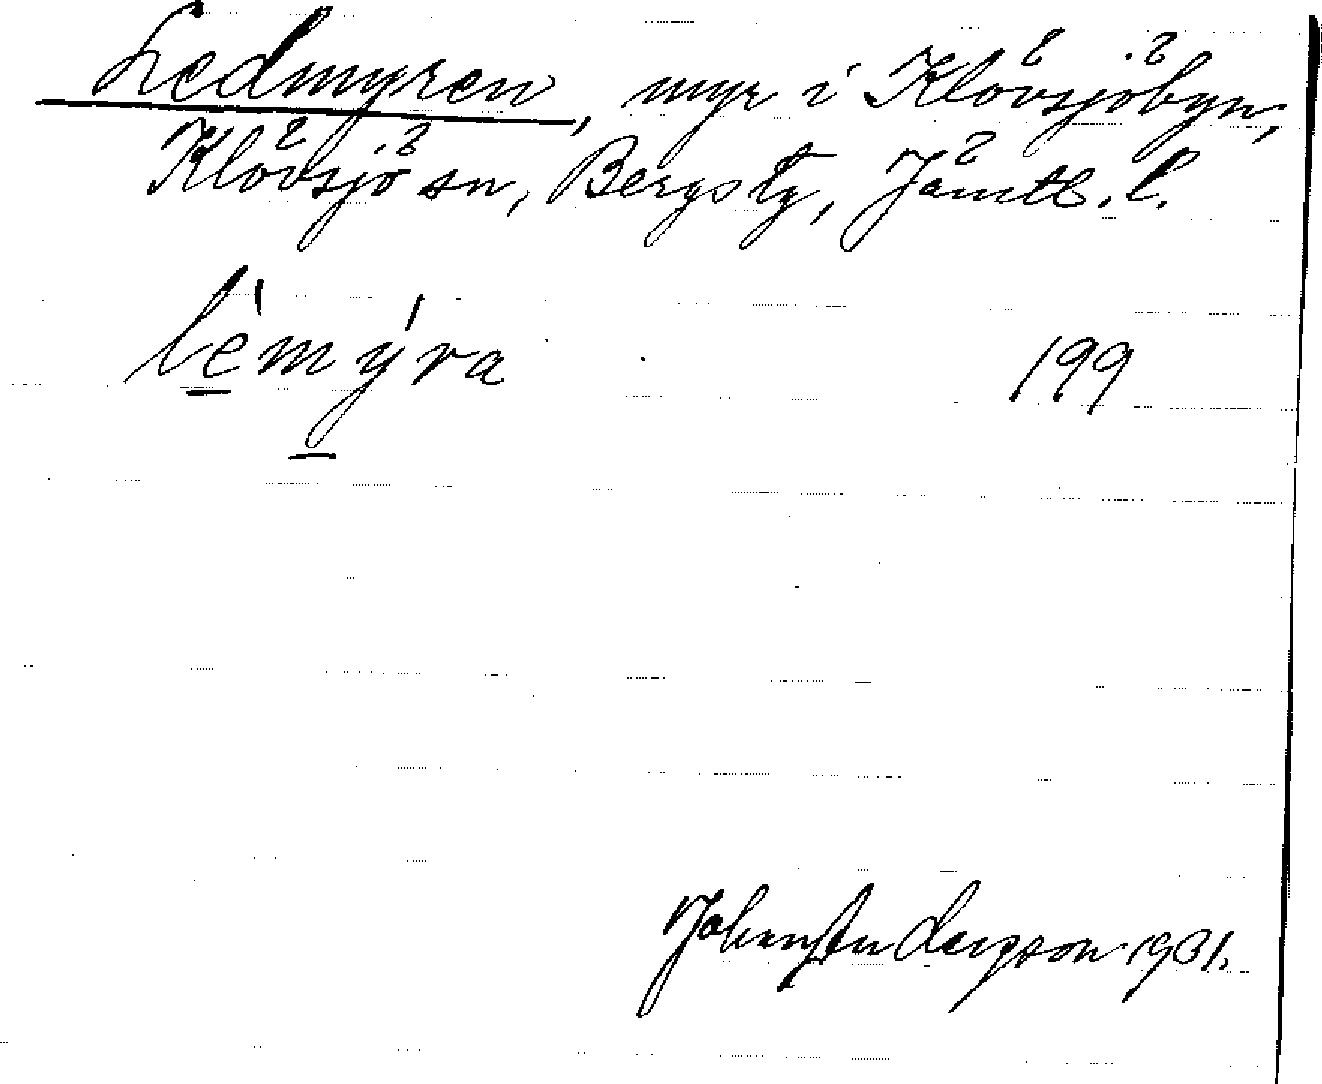 Ledmyren, myr i Klövsjöbyn,
Klövsjö sn, Bergs tg, Jämtl. l.
lèmýra 199
1931.